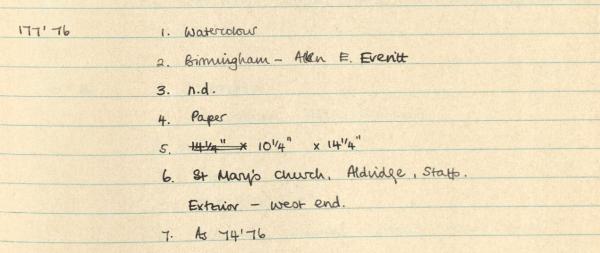 177'76 1. Watercolour
2. Birmingham - Allen E. Everitt
3. n.d.
4. Paper
5. 14¼" x 10¼" x 14¼"
6. St Mary's Church, Aldridge, Staffs.
Exterior - west end.
7. As 74'76